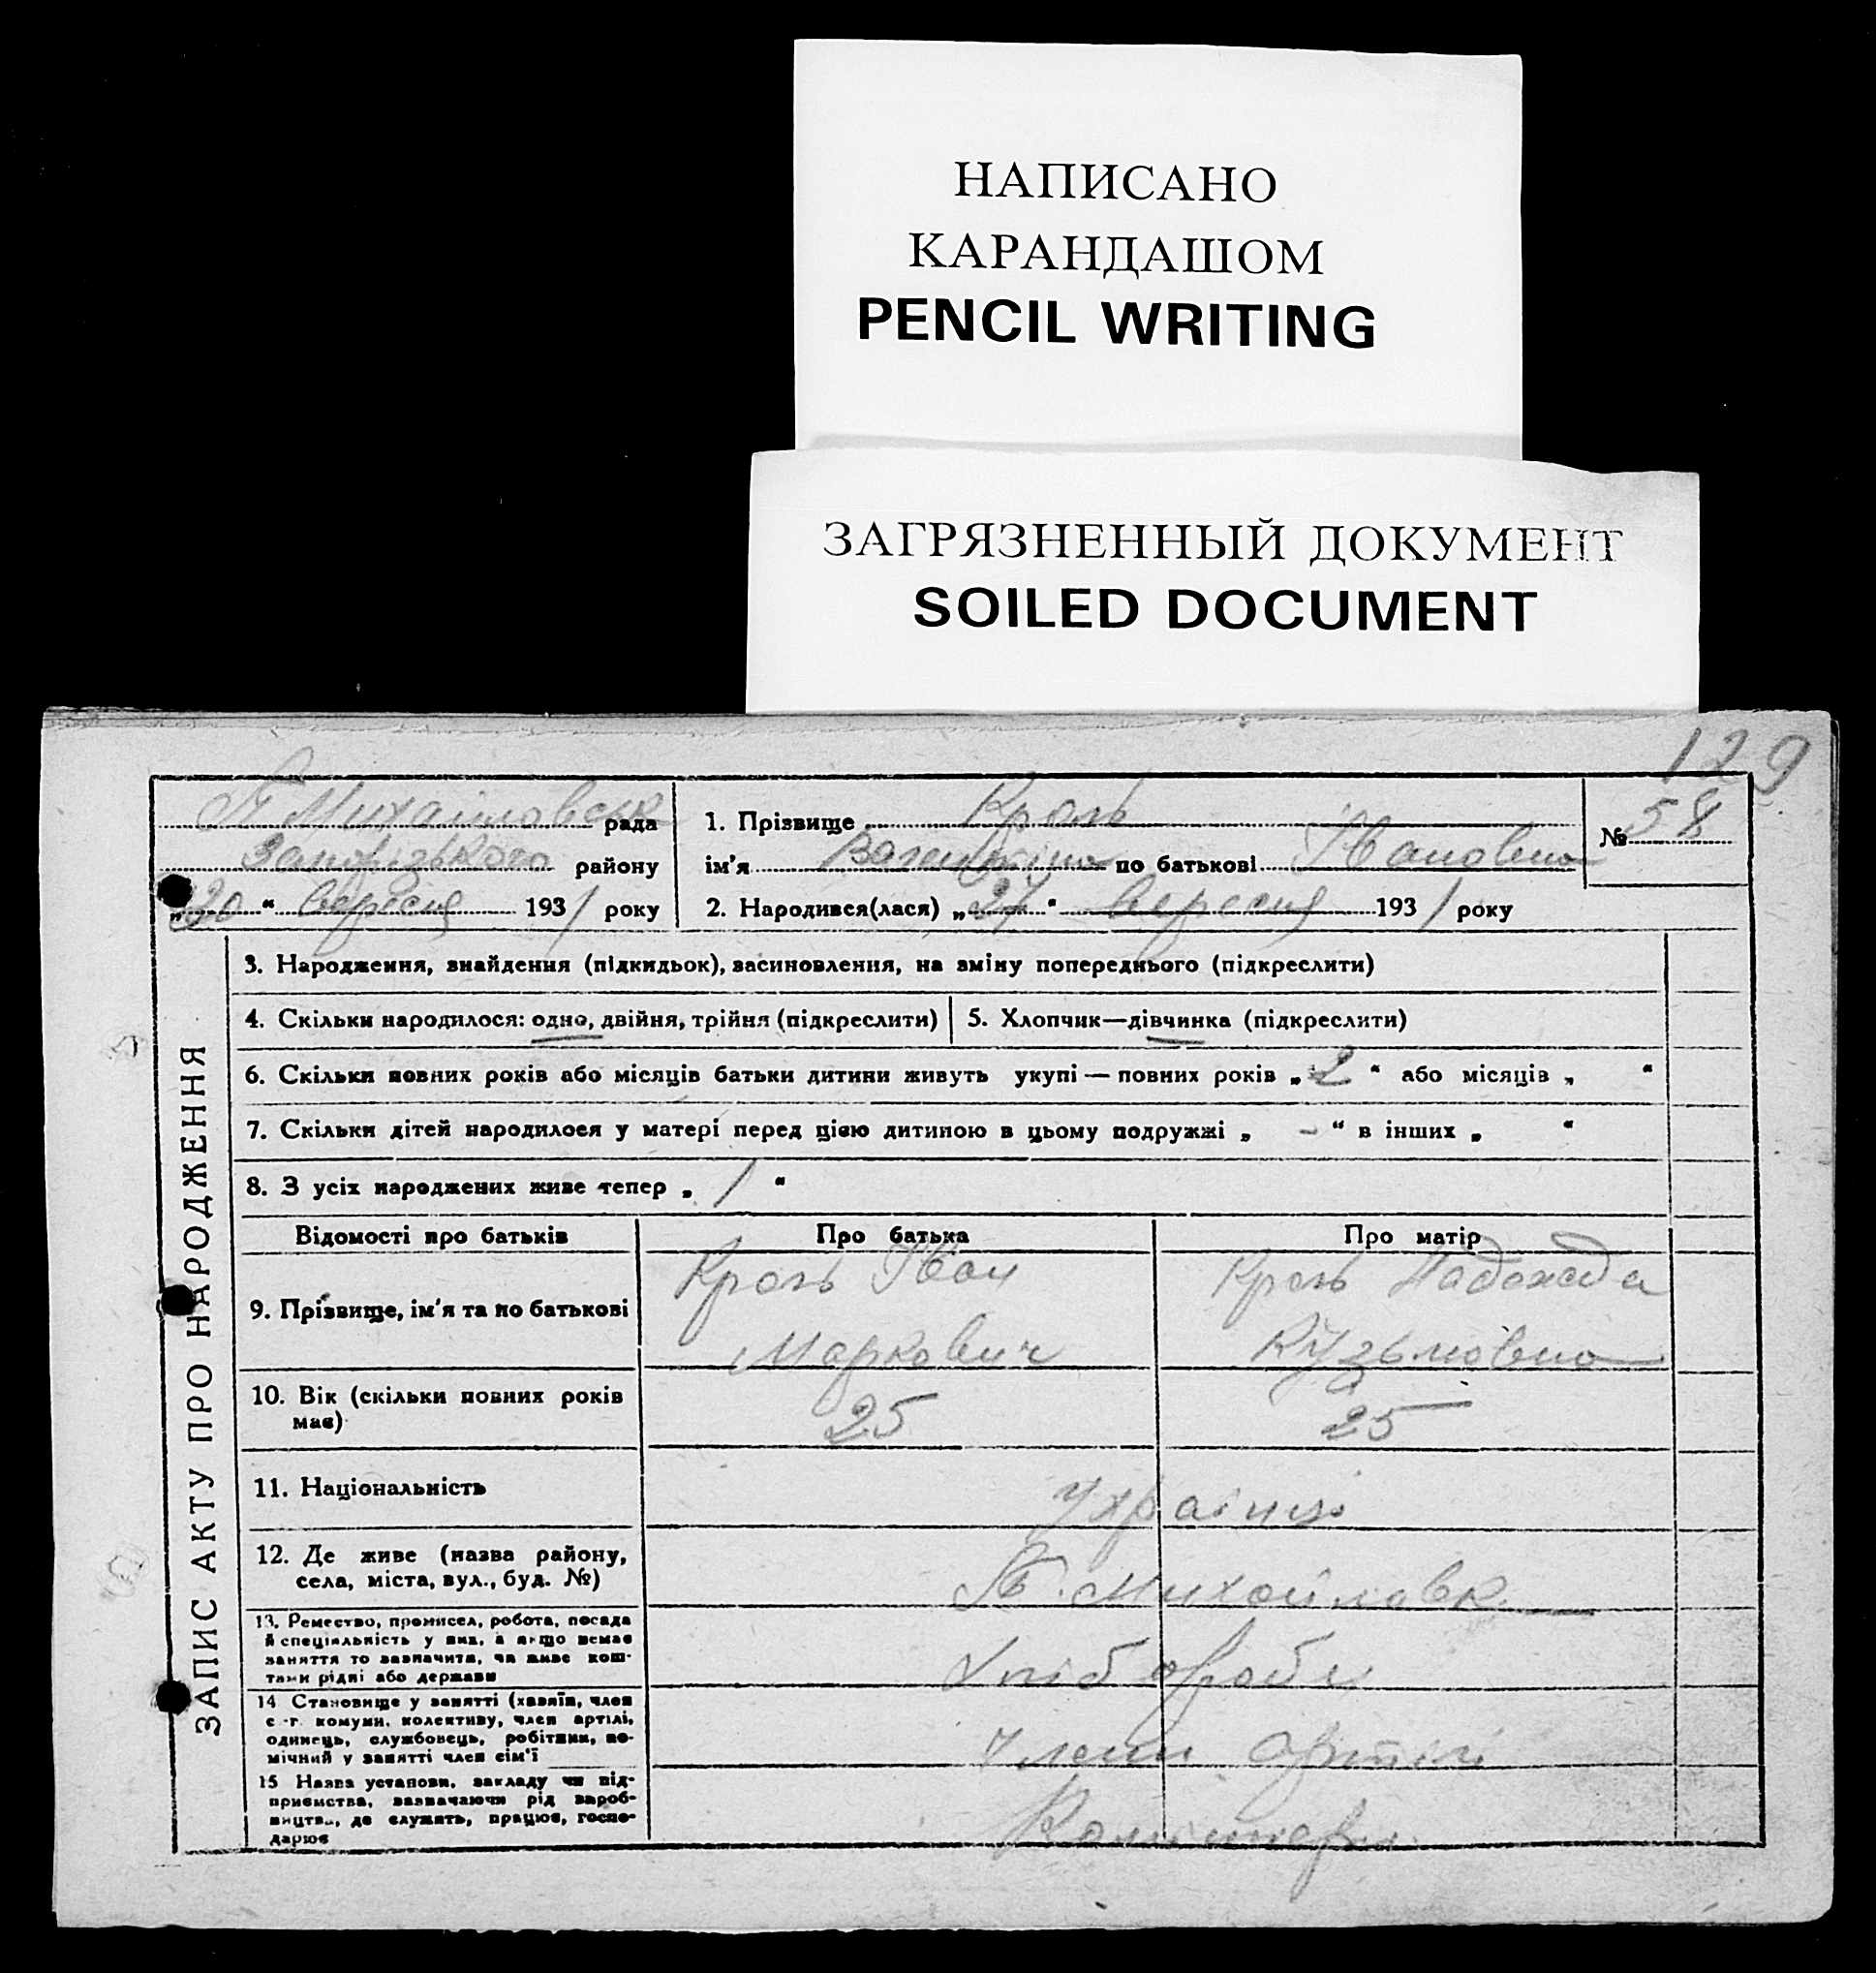 НАПИСАНО
КАРАНДАШОМ
PENCIL WRITING
ЗАГРЯЗНЕННЫЙ ДОКУМЕНТ
SOILED DOCUMENT
129
рада
1. Прізвище Кроль
№ 58
Запорізького району
ім'я Валентина по батькові Івановна
„30“ вересня 1931 року
2. Народився(лася) „27“ вересня 1931 року
ЗАПИС АКТУ ПРО НАРОДЖЕННЯ
3. Народження, знайдення (підкидьок), засиновлення, на зміну попереднього (підкреслити)
4. Скільки народилося: одно, двійня, трійня (підкреслити)
5. Хлопчик—дівчинка (підкреслити)
6. Скільки повних років або місяців батьки дитини живуть укупі — повних років „2“ або місяців „ “
7. Скільки дітей народилося у матері перед цією дитиною в цьому подружжі „ - “ в інших „ “
8. З усіх народжених живе тепер „ 1 “
Відомості про батьків
Про батька
Про матір
9. Прізвище, ім'я та по батькові
Кроль Іван
Маркович
Кроль
Кузьмовна
10. Вік (скільки повних років
має)
25
25
11. Національність
Україці
12. Де живе (назва району,
села, міста, вул., буд. №)
П. Михайловк
13. Ремество, промисел, робота, посада
й спеціяльність у них, а якщо немає
заняття то зазначити, чи живе кош-
тами рідні або держави
Хлібороби
14 Становище у занятті (хазяїн, член
с.-г. комуни, колективу, член артілі,
одинець, службовець, робітник, по-
мічний у занятті член сім'ї
Члени артілі
15 Назва установи, закладу чи під-
приємства, зазначаючи рід вироб-
ництва, де служить, працює, госпо-
дарює